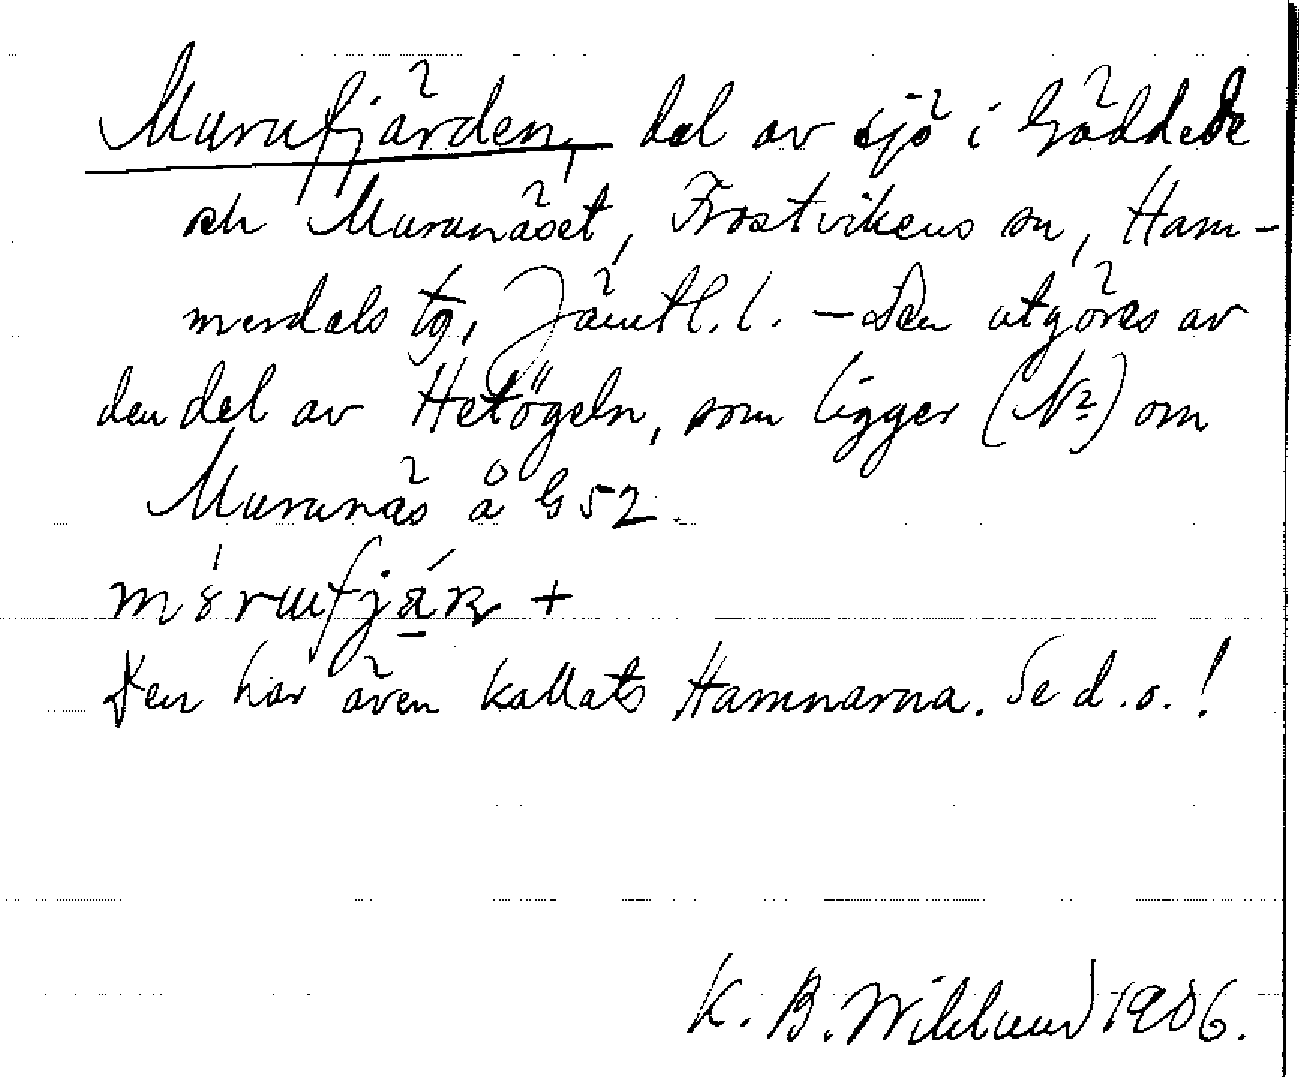 Murufjärden, del av sjö i Gäddede
och Murunäset, Frostvikens sn, Ham-
merdals tg, Jämtl. l. – Den utgöres av
den del av Hetögeln, som ligger (N²) om
Murunäs å G 52.
Den har även kallats Hamnarna. Se d. o.!
K. B. Wiklund 1906.